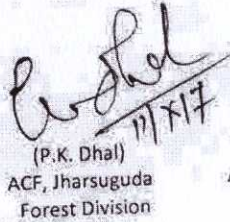 11/X/17
(P.K. Dhal)
ACF, Jharsuguda
Forest Division